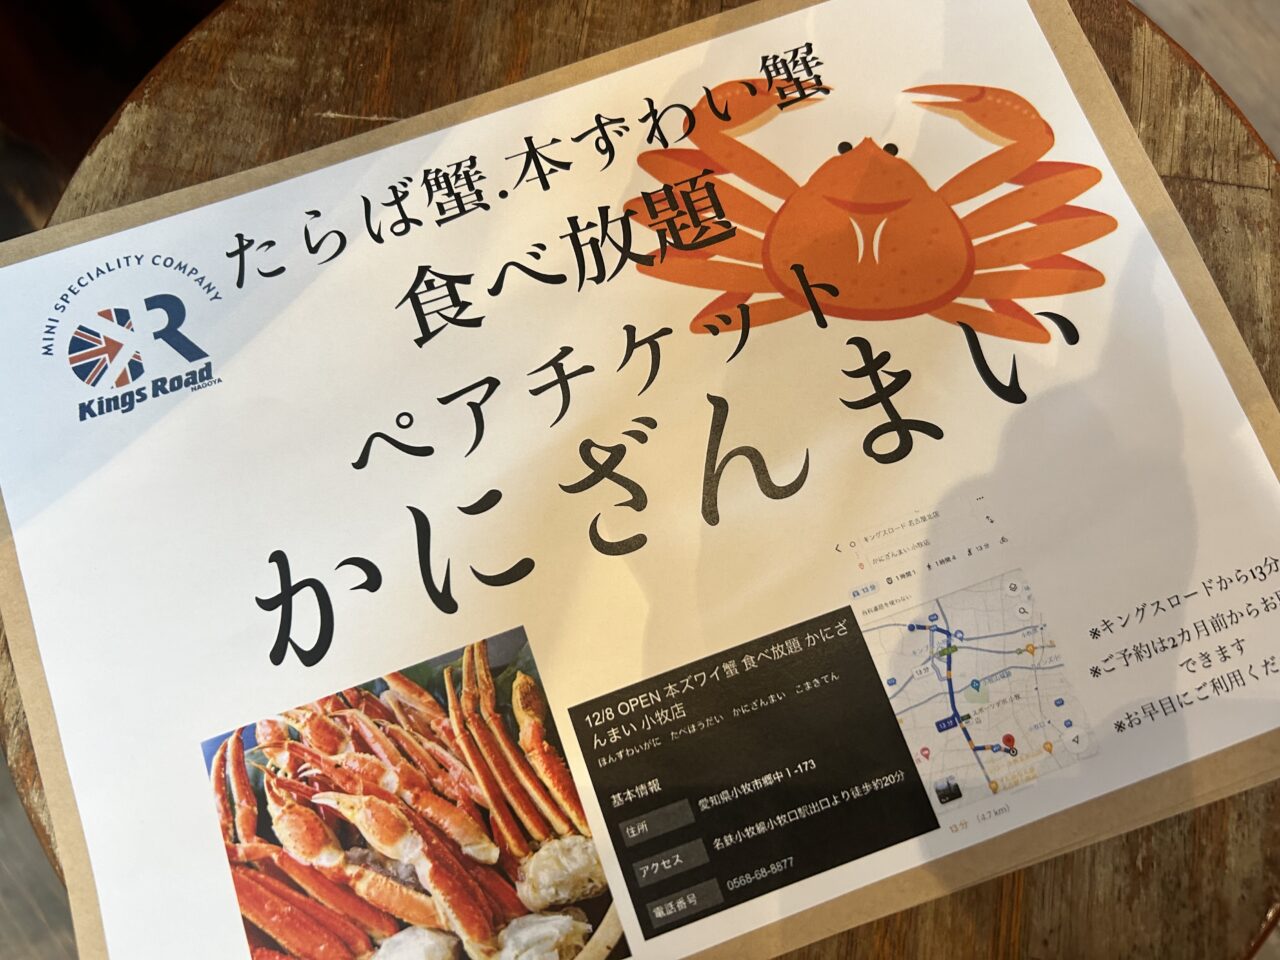 たらば蟹.本ずわい蟹
食べ放題
ペアチケット
かにざんまい
MINI SPECIALITY COMPANY
KR
Kings Road
NAGOYA
キングスロード 名古屋北店
かにざんまい 小牧店
13分
1時間1
1時間4
13分
有料道路を使わない
13分
13分 (4.7 km)
12/8 OPEN 本ズワイ蟹 食べ放題 かにざ
んまい 小牧店
ほんずわいがに たべほうだい かにざんまい こまきてん
基本情報
住所
愛知県小牧市郷中1-173
アクセス
名鉄小牧線小牧口駅出口より徒歩約20分
電話番号
0568-68-8877
※キングスロードから13分
※ご予約は2カ月前からお
できます
※お早目にご利用くだ